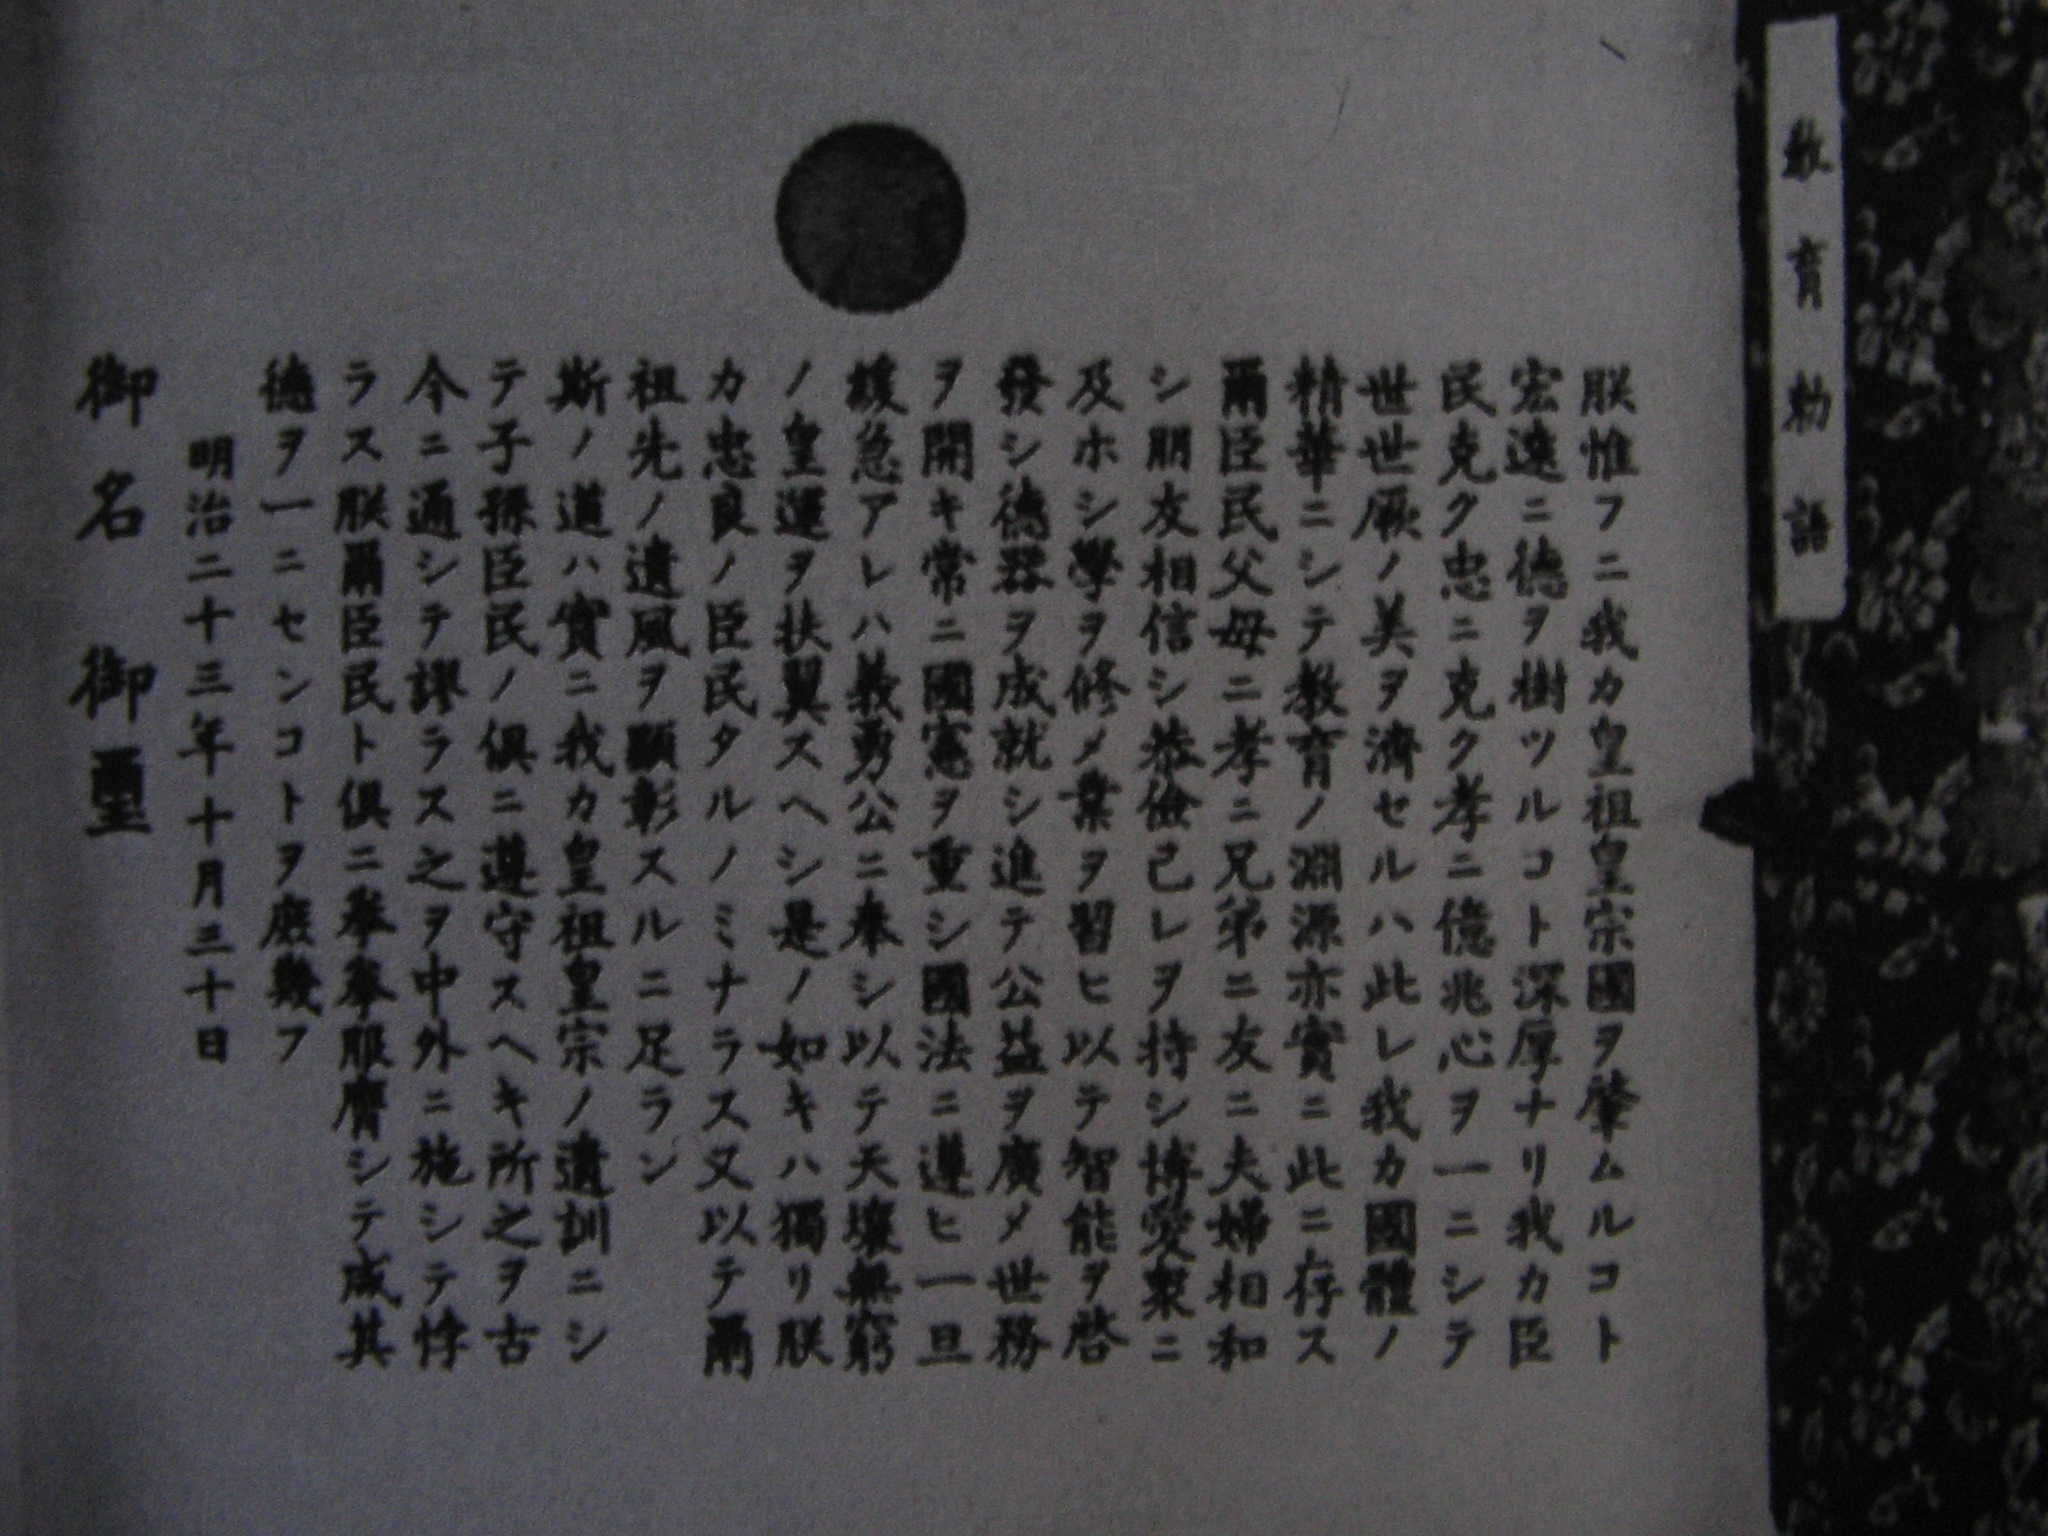 教育勅語
朕惟フニ我カ皇祖皇宗國ヲ肇ムルコト
宏遠ニ德ヲ樹ツルコト深厚ナリ我カ臣
民克ク忠ニ克ク孝ニ億兆心ヲ一ニシテ
世世厥ノ美ヲ濟セルハ此レ我カ國體ノ
精華ニシテ教育ノ淵源亦實ニ此ニ存ス
爾臣民父母ニ孝ニ兄弟ニ友ニ夫婦相和
シ朋友相信シ恭儉己レヲ持シ博愛衆ニ
及ホシ學ヲ修メ業ヲ習ヒ以テ智能ヲ啓
發シ德器ヲ成就シ進テ公益ヲ廣メ世務
ヲ開キ常ニ國憲ヲ重シ國法ニ遵ヒ一旦
緩急アレハ義勇公ニ奉シ以テ天壤無窮
ノ皇運ヲ扶翼スヘシ是ノ如キハ獨リ朕
カ忠良ノ臣民タルノミナラス又以テ爾
祖先ノ遺風ヲ顯彰スルニ足ラン
斯ノ道ハ實ニ我カ皇祖皇宗ノ遺訓ニシ
テ子孫臣民ノ俱ニ遵守スヘキ所之ヲ古
今ニ通シテ謬ラス之ヲ中外ニ施シテ悖
ラス朕爾臣民ト俱ニ拳拳服膺シテ咸其
德ヲ一ニセンコトヲ庶幾フ
明治二十三年十月三十日
御名 御璽